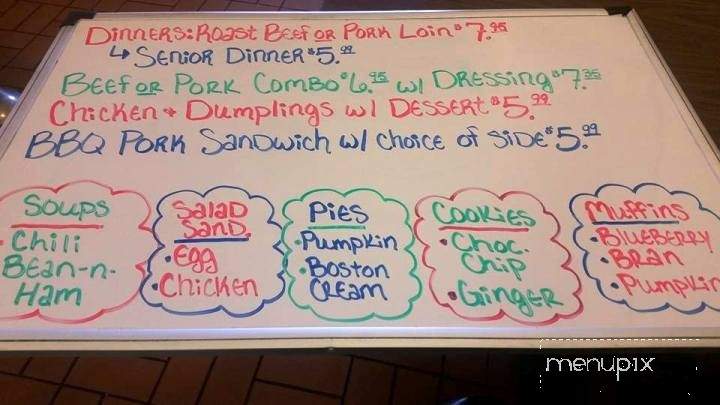 Dinners: Roast Beef or Pork Loin $7.95
↳ Senior Dinner $5.99
Beef or Pork Combo $6.95 w/ Dressing $7.35
Chicken + Dumplings w/ Dessert $5.99
BBQ Pork Sandwich w/ choice of side $5.99
Soups
• Chili
Bean-n-
Ham
Salad
Sand.
• Egg
• Chicken
Pies
• Pumpkin
• Boston
Cream
Cookies
• Choc.
Chip
• Ginger
Muffins
• Blueberry
• Bran
• Pumpkin
menupix